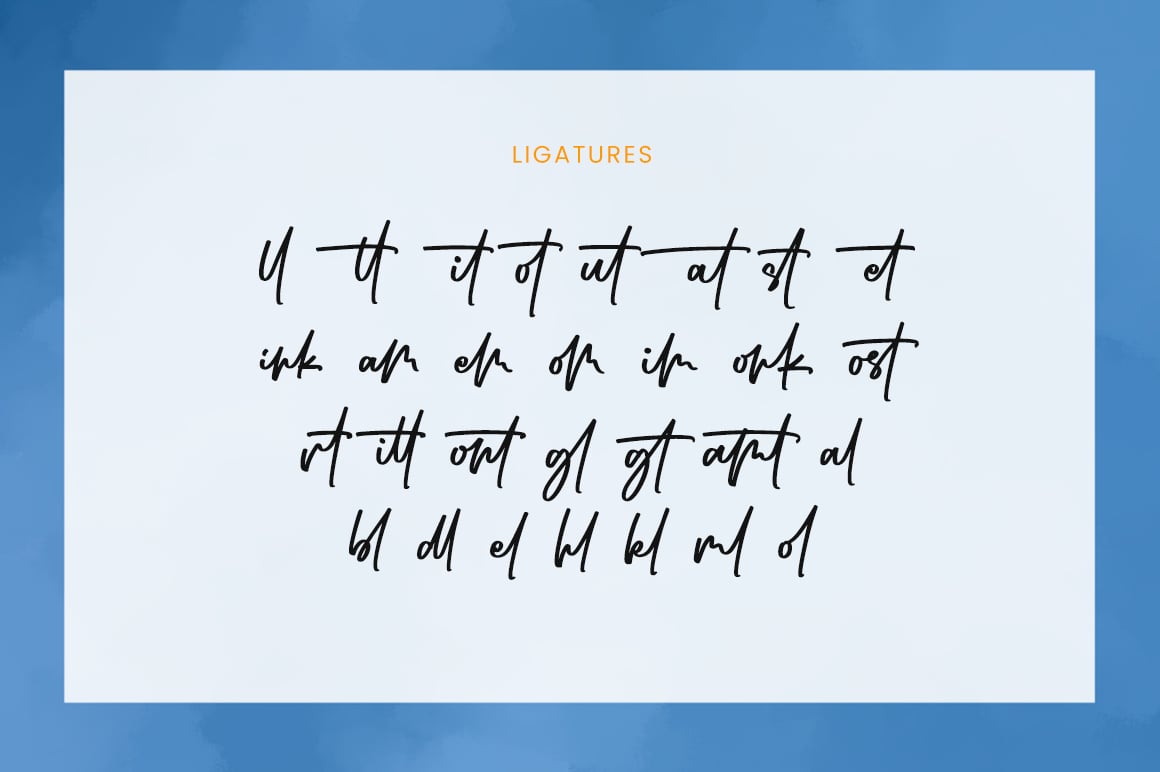 LIGATURES
ll tt it ot ut at st et
ink an en on in onk ost
rt itt ont gl gt ant al
bl dl el hl kl ml ol